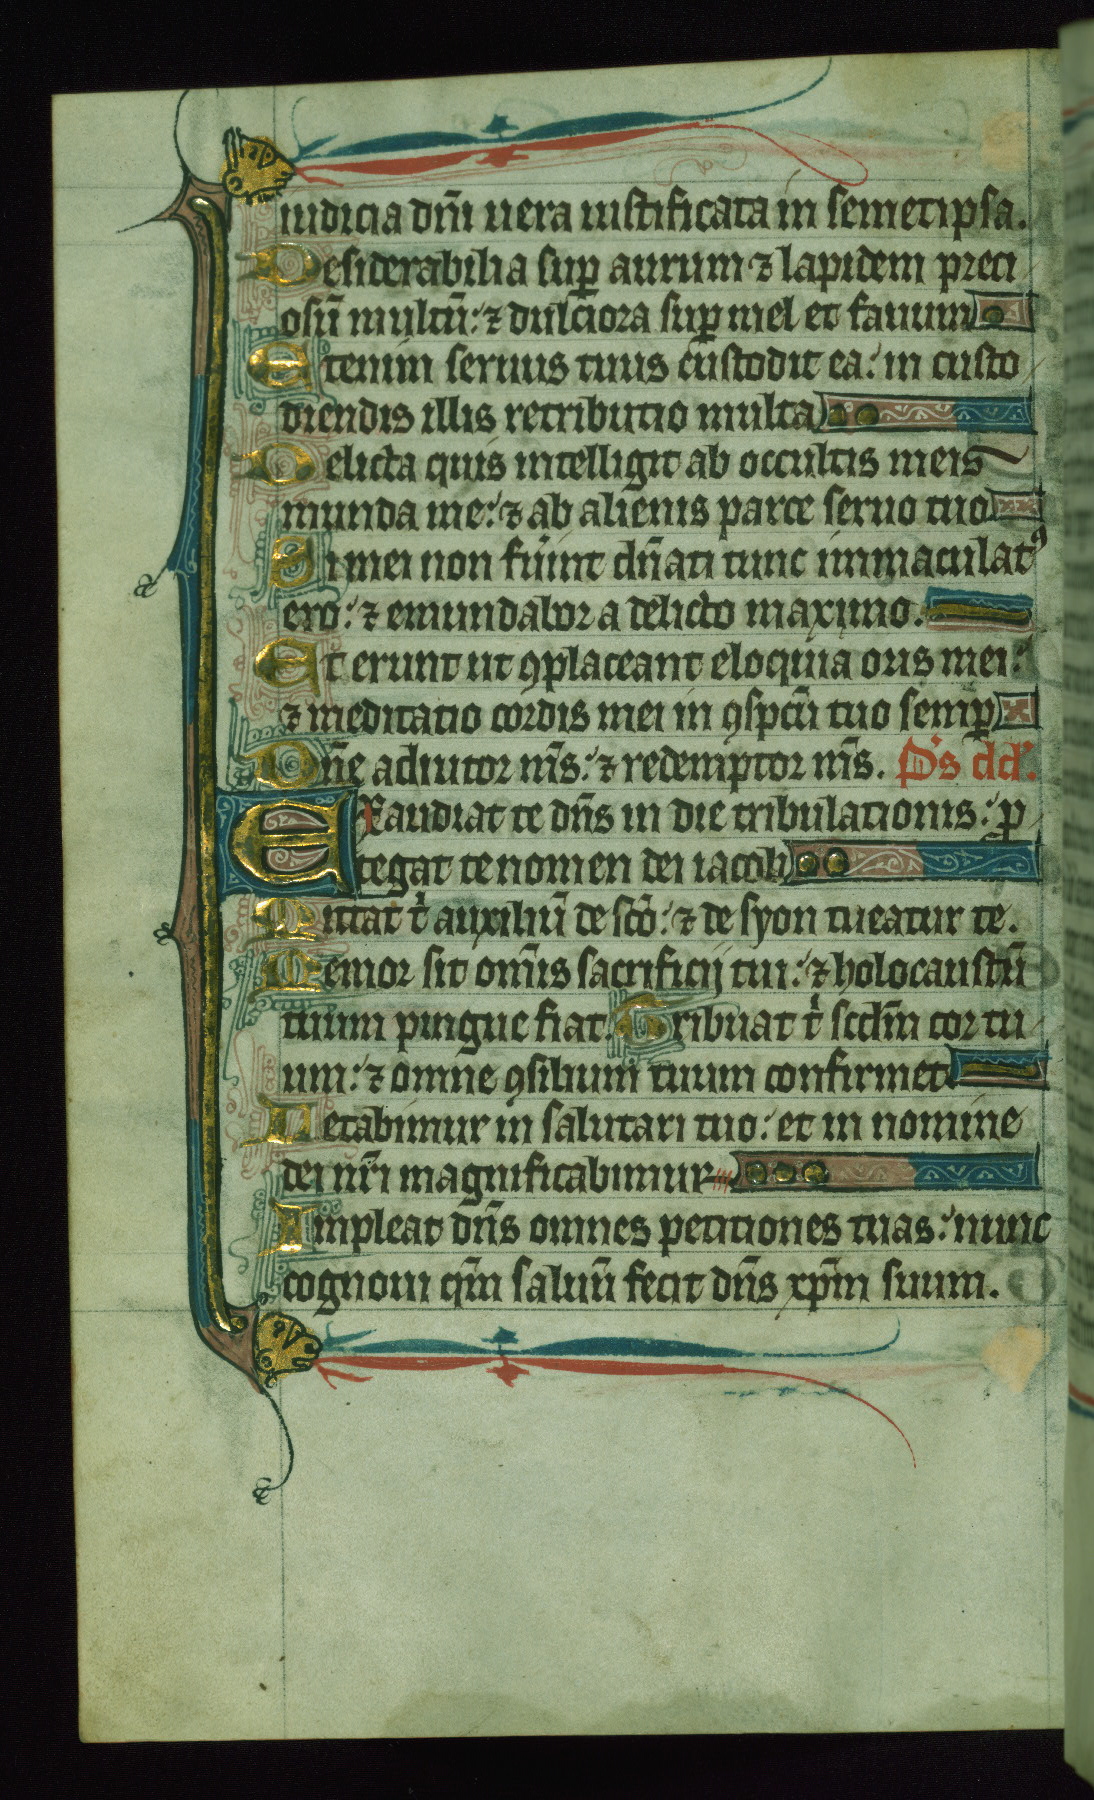 iudicia dñi uera iustificata in semetipsa.
Desiderabilia sup̱ aurum ⁊ lapidem preci
osũ multũ: ⁊ dulciora sup̱ mel et fauum
Etenim seruus tuus custodit ea: in custo
diendis illis retributio multa
Delicta quis intelligit ab occultis meis
munda me: ⁊ ab alienis parce seruo tuo
Si mei non fu̾int dñati tunc immaculatꝰ
ero: ⁊ emundabor a delicto maximo.
Et erunt ut ꝯplaceant eloquia oris mei:
⁊ meditatio cordis mei in ꝯspc̃u tuo semp̱
Dñe adiutor m̃s: ⁊ redemptor m̃s. Ps dd.
EXaudiat te dñs in die tribulationis: ꝓ
tegat te nomen dei iacob
Mittat tͥ auxiliũ de sc̃o: ⁊ de syon tueatur te.
Memor sit om̃is sacrificij tui: ⁊ holocaustũ
tuum pingue fiat. Tribuat tͥ scd̃m cor tu
um: ⁊ omne ꝯsilium tuum confirmet
Letabimur in salutari tuo: et in nomine
dei nr̃i magnificabimur
Impleat dñs omnes petitiones tuas: nunc
cognoui qm̃ saluũ fecit dñs xp̃m suum.